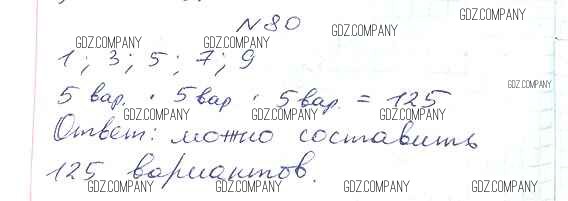 N80
GDZ.COMPANY GDZ.COMPANY GDZ.COMPANY
GDZ.COMPANY GDZ.COMPANY
1; 3; 5; 7; 9
GDZ.COMPANY
5 вар. · 5 вар · 5 вар. = 125
GDZ.COMPANY GDZ.COMPANY GDZ.COMPANY
Ответ: можно составить
125 вариантов.
GDZ.COMPANY GDZ.COMPANY GDZ.COMPANY GDZ.COMPANY